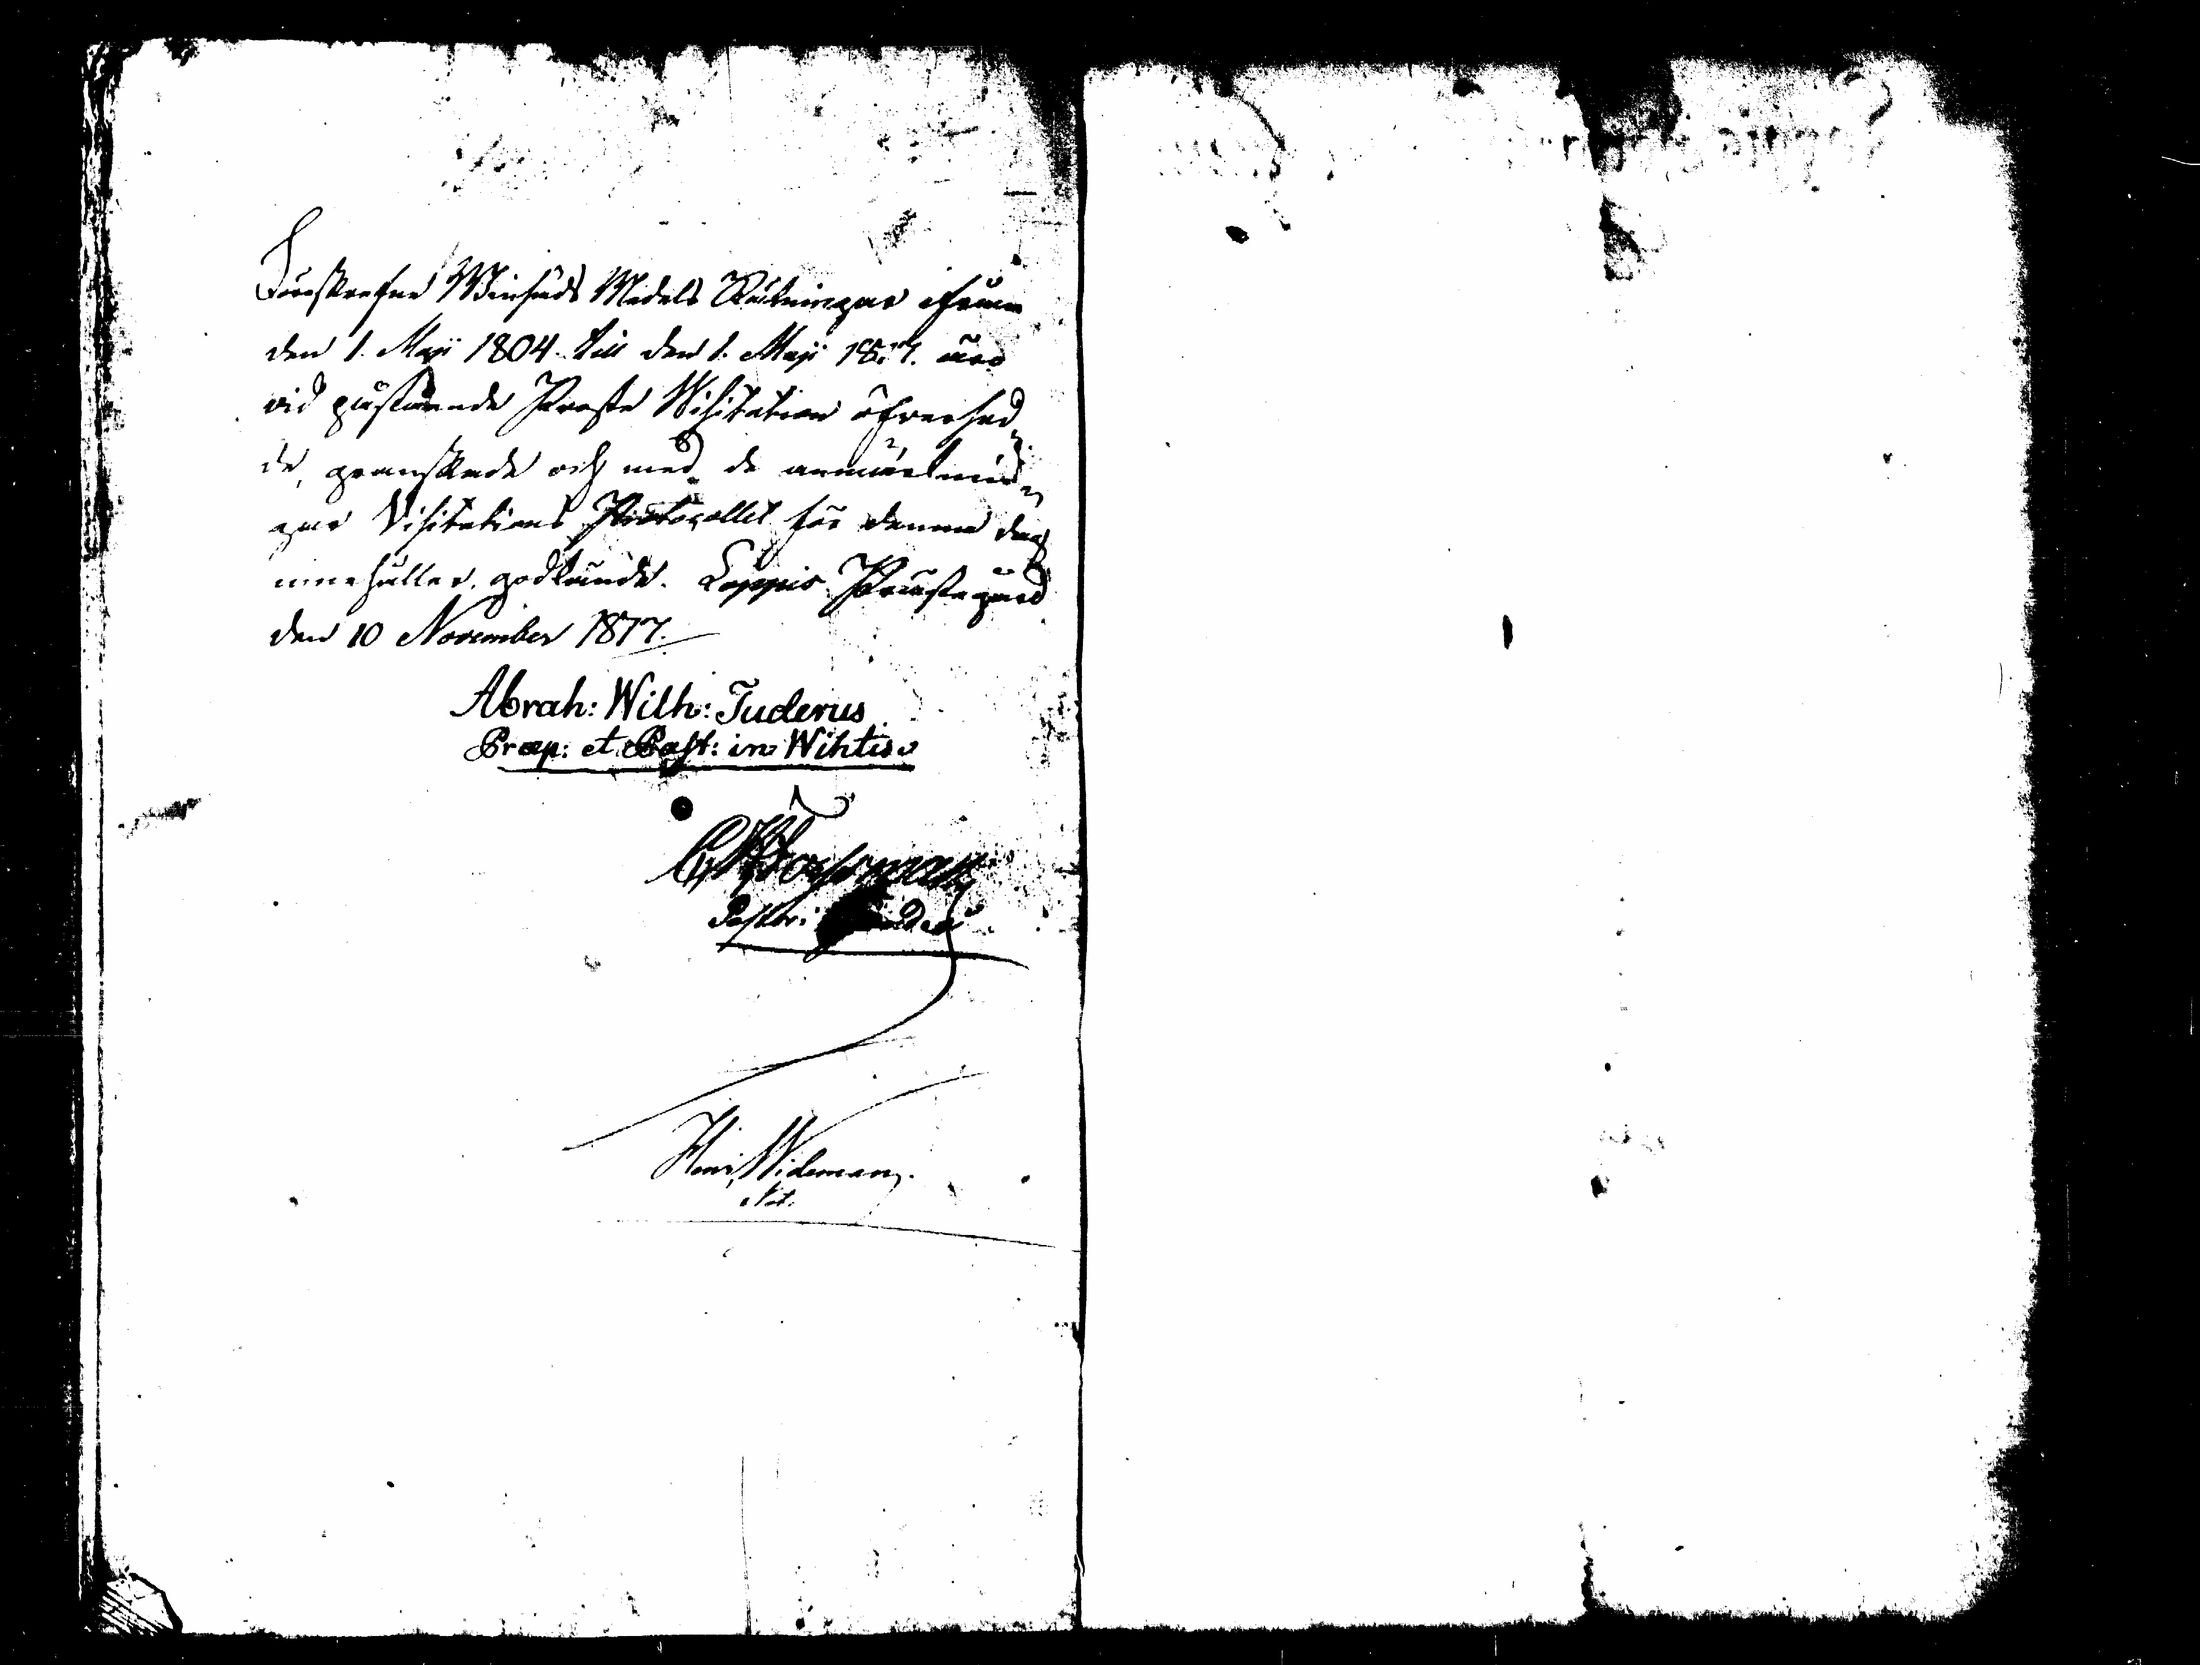 Förestående Winhuds Medels Räkningar ifrån
den 1. Maji 1804. till den 1. Maji 1817. äro
vid påstående Prosts Visitation öfversed-
de, granskade och med de anmärknin-
gar Visitations Protocollet för denna dag
innehåller, godkände. Loppis Prästegård
den 10 November 1817.
Abrah: Wilh: Tuderus
Præp: et Past: in Wihtis
Pastor:
Henr. Wideman.
Not.